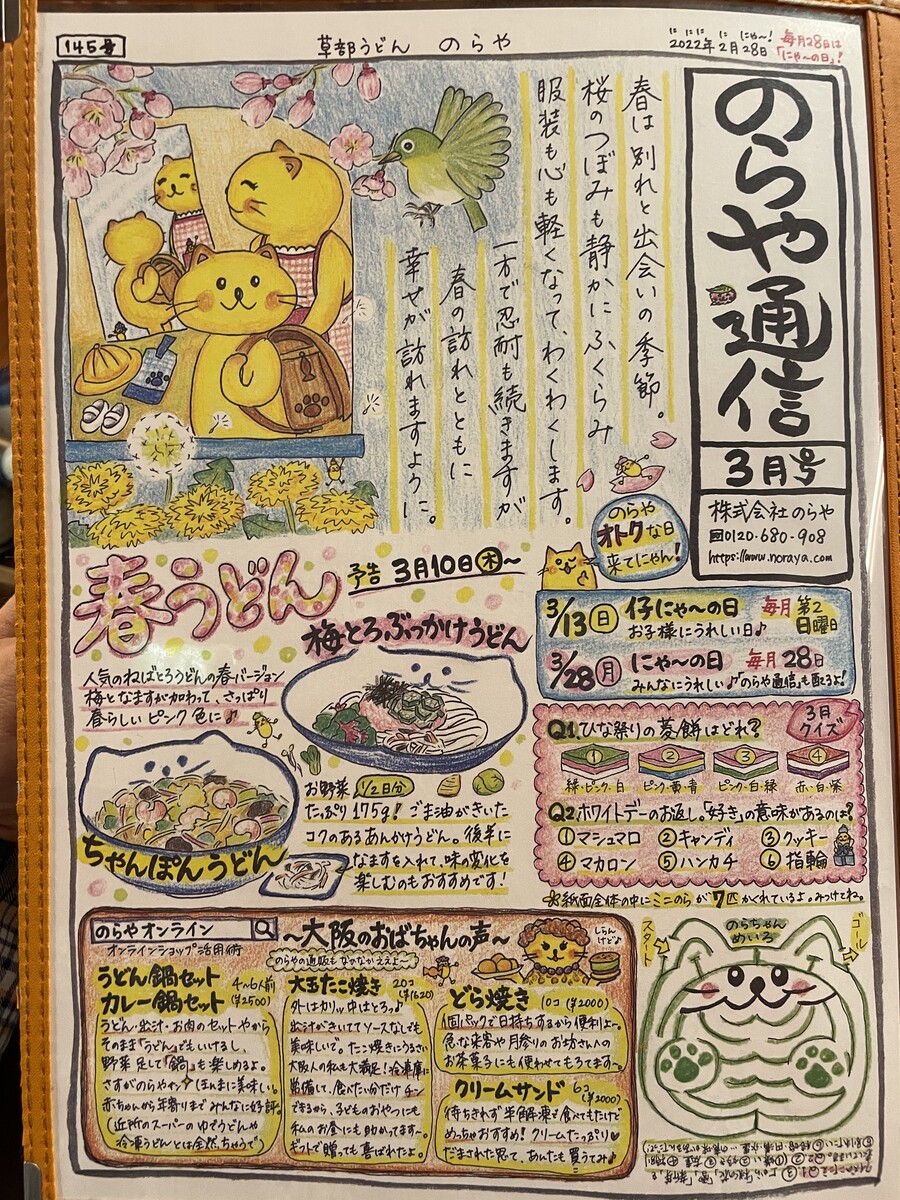 145号
草部うどん のらや
にに に にゃ〜!
2022年2月28日
毎月28日は
「にゃ〜の日」!
のらや通信
3月号
株式会社 のらや
0120-680-908
https://www.noraya.com
春は別れと出会いの季節。
桜のつぼみも静かにふくらみ
服装も心も軽くなって、わくわくします。
一方で忍耐も続きますが
春の訪れとともに
幸せが訪れますように。
のらや
オトクな日
来てにゃん!
3/13(日) 仔にゃ〜の日 毎月第2日曜日
お子様にうれしい日♪
3/28(月) にゃ〜の日 毎月28日
みんなにうれしい♪「のらや通信」も配るよ!
春うどん
予告 3月10日(木)〜
梅とろぶっかけうどん
人気のねばとろうどんの春バージョン
梅となますが加わって、さっぱり
春らしいピンク色に♪
ちゃんぽんうどん
お野菜 1/2日分
たっぷり175g! ごま油がきいた
コクのあるあんかけうどん。後半に
なますを入れて、味の変化を
楽しむのもおすすめです!
3月
クイズ
Q1.ひな祭りの菱餅はどれ?
① ② ③ ④
緑・ピンク・白 ピンク・黄・青 ピンク・白・緑 赤・白・紫
Q2.ホワイトデーのお返し、「好き」の意味があるのは?
①マシュマロ ②キャンディ ③クッキー
④マカロン ⑤ハンカチ ⑥指輪
※紙面全体の中にミニのらが7匹かくれているよ。みつけてね。
のらやオンライン
オンラインショップ活用術
〜大阪のおばちゃんの声〜
のらやの通販もなかなかええよ〜
しらんけど♪
うどん鍋セット
カレー鍋セット
4〜6人前
(¥2500)
うどん・出汁・お肉のセットやから
そのまま「うどん」でもいけるし、
野菜足して「鍋」も楽しめるよ。
さすがのらやサン ほんまに美味しい。
赤ちゃんから年寄りまでみんなに好評。
(近所のスーパーのゆでうどんや
冷凍うどんとは全然ちゃうで)
大玉たこ焼き 20コ
(¥1620)
外はカリッ、中はとろっ♪
出汁がきいててソースなしでも
美味しいで。たこ焼きにうるさい
大阪人の私も大満足!冷凍庫に
常備して、食べたい分だけチン
できるから、子どものおやつにも
私のお昼にも助かってます〜。
ギフトで贈っても喜ばれたよ。
どら焼き 10コ (¥2000)
個パックで日持ちするから便利よ〜。
急な来客や月参りのお坊さんへの
お茶菓子にも使わせてもろてます。
クリームサンド 6コ
(¥2000)
待ちきれず半解凍で食べてもたけど
めっちゃおすすめ! クリームたっぷり♡
だまされた思て、あんたも買うてみ♪
のらちゃん
めいろ
スタート
ゴール